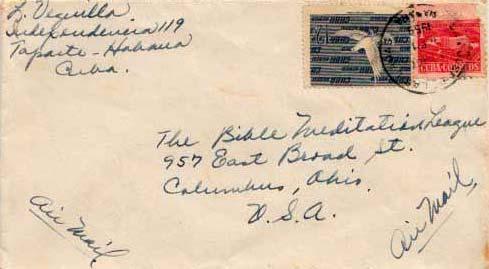 Independencia 119
Habana
Cuba.
CUBA CORREOS
The Bible Meditation League
957 East Broad St.
Columbus, Ohio.
U.S.A.
Air Mail,
Air Mail,